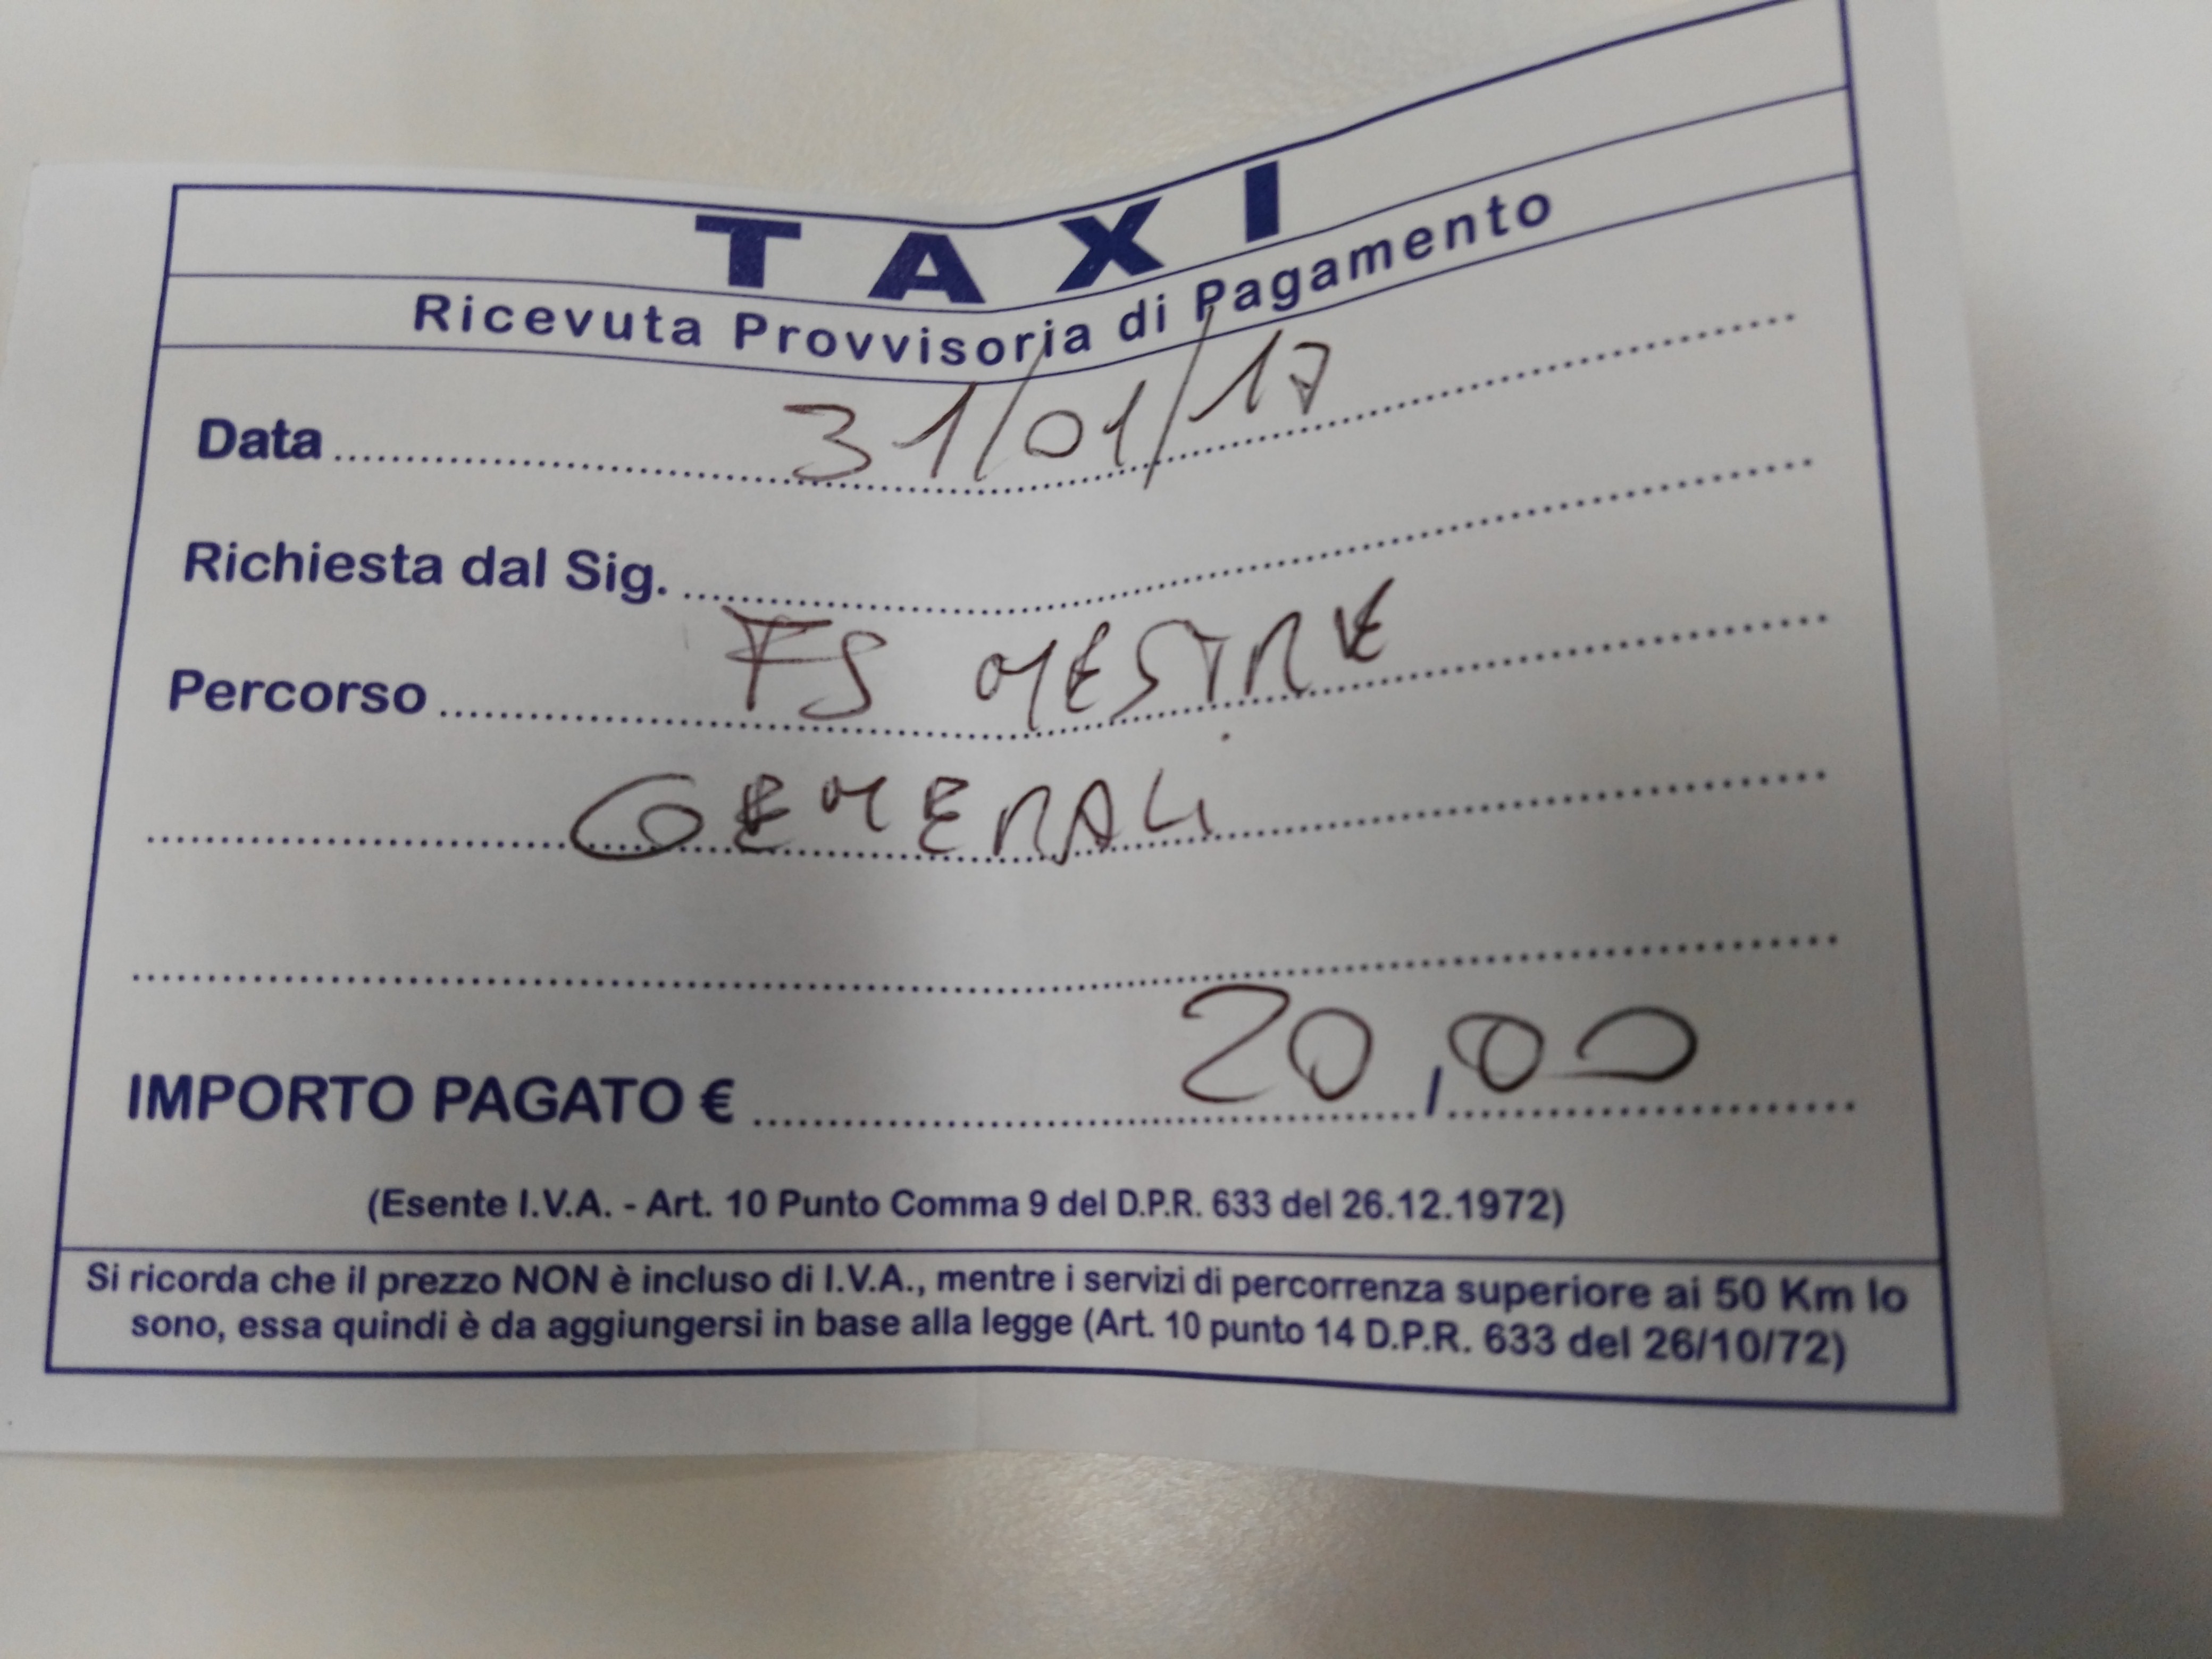 TAXI
Ricevuta Provvisoria di Pagamento
Data 31/01/17
Richiesta dal Sig.
Percorso FS MESTRE
GENERALI
IMPORTO PAGATO € 20,00
(Esente I.V.A. - Art. 10 Punto Comma 9 del D.P.R. 633 del 26.12.1972)
Si ricorda che il prezzo NON è incluso di I.V.A., mentre i servizi di percorrenza superiore ai 50 Km lo
sono, essa quindi è da aggiungersi in base alla legge (Art. 10 punto 14 D.P.R. 633 del 26/10/72)